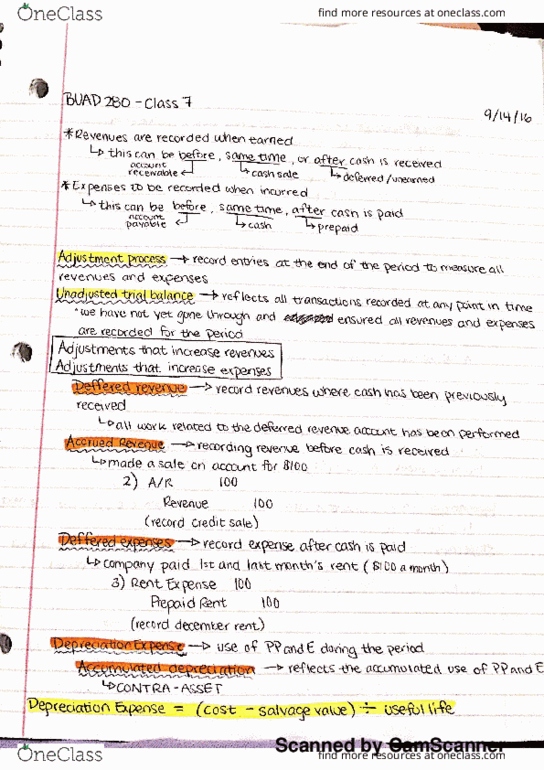 OneClass
find more resources at oneclass.com
BUAD 280 - Class 7
9/14/16
* Revenues are recorded when earned
↳ this can be before, same time, or after cash is received
account receivable cash sale deferred/unearned
* Expenses to be recorded when incurred
↳ this can be before, same time, after cash is paid
account payable cash prepaid
Adjustment process → record entries at the end of the period to measure all
revenues and expenses
Unadjusted trial balance → reflects all transactions recorded at any point in time
*we have not yet gone through and ensured all revenues and expenses
are recorded for the period
Adjustments that increase revenues
Adjustments that increase expenses
Deffered revenue → record revenues where cash has been previously
received
↳ all work related to the deferred revenue account has been performed
Accrued Revenue → recording revenue before cash is received
↳ made a sale on account for $100
2) A/R 100
Revenue 100
(record credit sale)
Deffered expenses → record expense after cash is paid
↳ company paid 1st and last month's rent ($100 a month)
3) Rent Expense 100
Prepaid Rent 100
(record december rent)
Depreciation Expense → use of PP and E during the period
Accumulated depreciation → reflects the accumulated use of PP and E
↳ CONTRA-ASSET
Depreciation Expense = (cost - salvage value) ÷ useful life
Scanned by CamScanner
OneClass
find more resources at oneclass.com